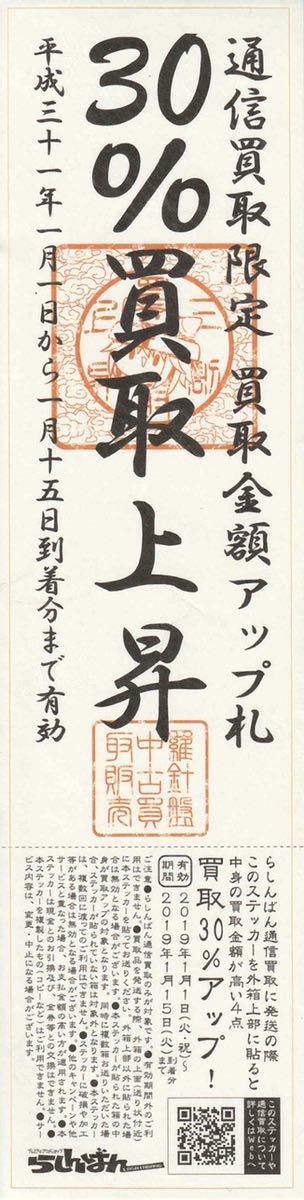 通信買取限定 買取金額アップ札
30%買取上昇
平成三十一年一月一日から一月十五日到着分まで有効
羅針盤
中古買
取販売
らしんばん通信買取に発送の際
このステッカーを外箱上部に貼ると
中身の買取金額が高い4点
買取30%アップ!
有効期間
2019年1月1日(火・祝)~
2019年1月15日(火)到着分まで
このステッカーや
通信買取について
詳しくはWebへ
ご注意●らしんばん通信買取のみが対象です。●有効期間外のご利
用はできません。●買取品を発送する際、外箱の上面(送り状付近)
に本ステッカーを貼ってお送りください。外箱上部以外に貼られた場
合は無効となる場合がございます。●本ステッカーが貼られた箱の中
身が買取アップの対象となります。同時に複数箱お送りいただいた場
合、ステッカーが貼られていない箱は対象外となります。●本ステッカー
は、複数回に渡ってのご利用はできません。●ステッカーに破損や加工
等がある場合は無効となる場合がございます。●他のキャンペーンや
サービスと重なった場合、お支払金額の高い方が適用されます。●本
ステッカーは現金とのお引換及び、金券等との交換はできません。●
本ステッカーを複製したもの(コピーなど)はご利用できません。●サー
ビス内容は、変更、中止になる場合がございます。
らしんばん